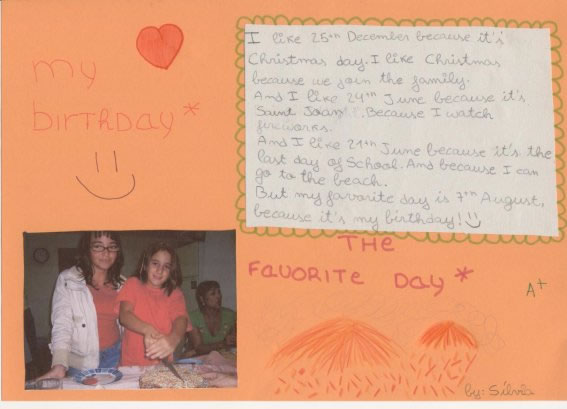 my
birthday*
I like 25th December because it's
Christmas day. I like Christmas
because we join the family.
And I like 24th June because it's
"Saint Joan". Because I watch
fireworks.
And I like 21th June because it's the
last day of School. And because I can
go to the beach.
But my favorite day is 7th August,
because it's my birthday!
THE
FAVORITE DAY*
A+
by: Silvia